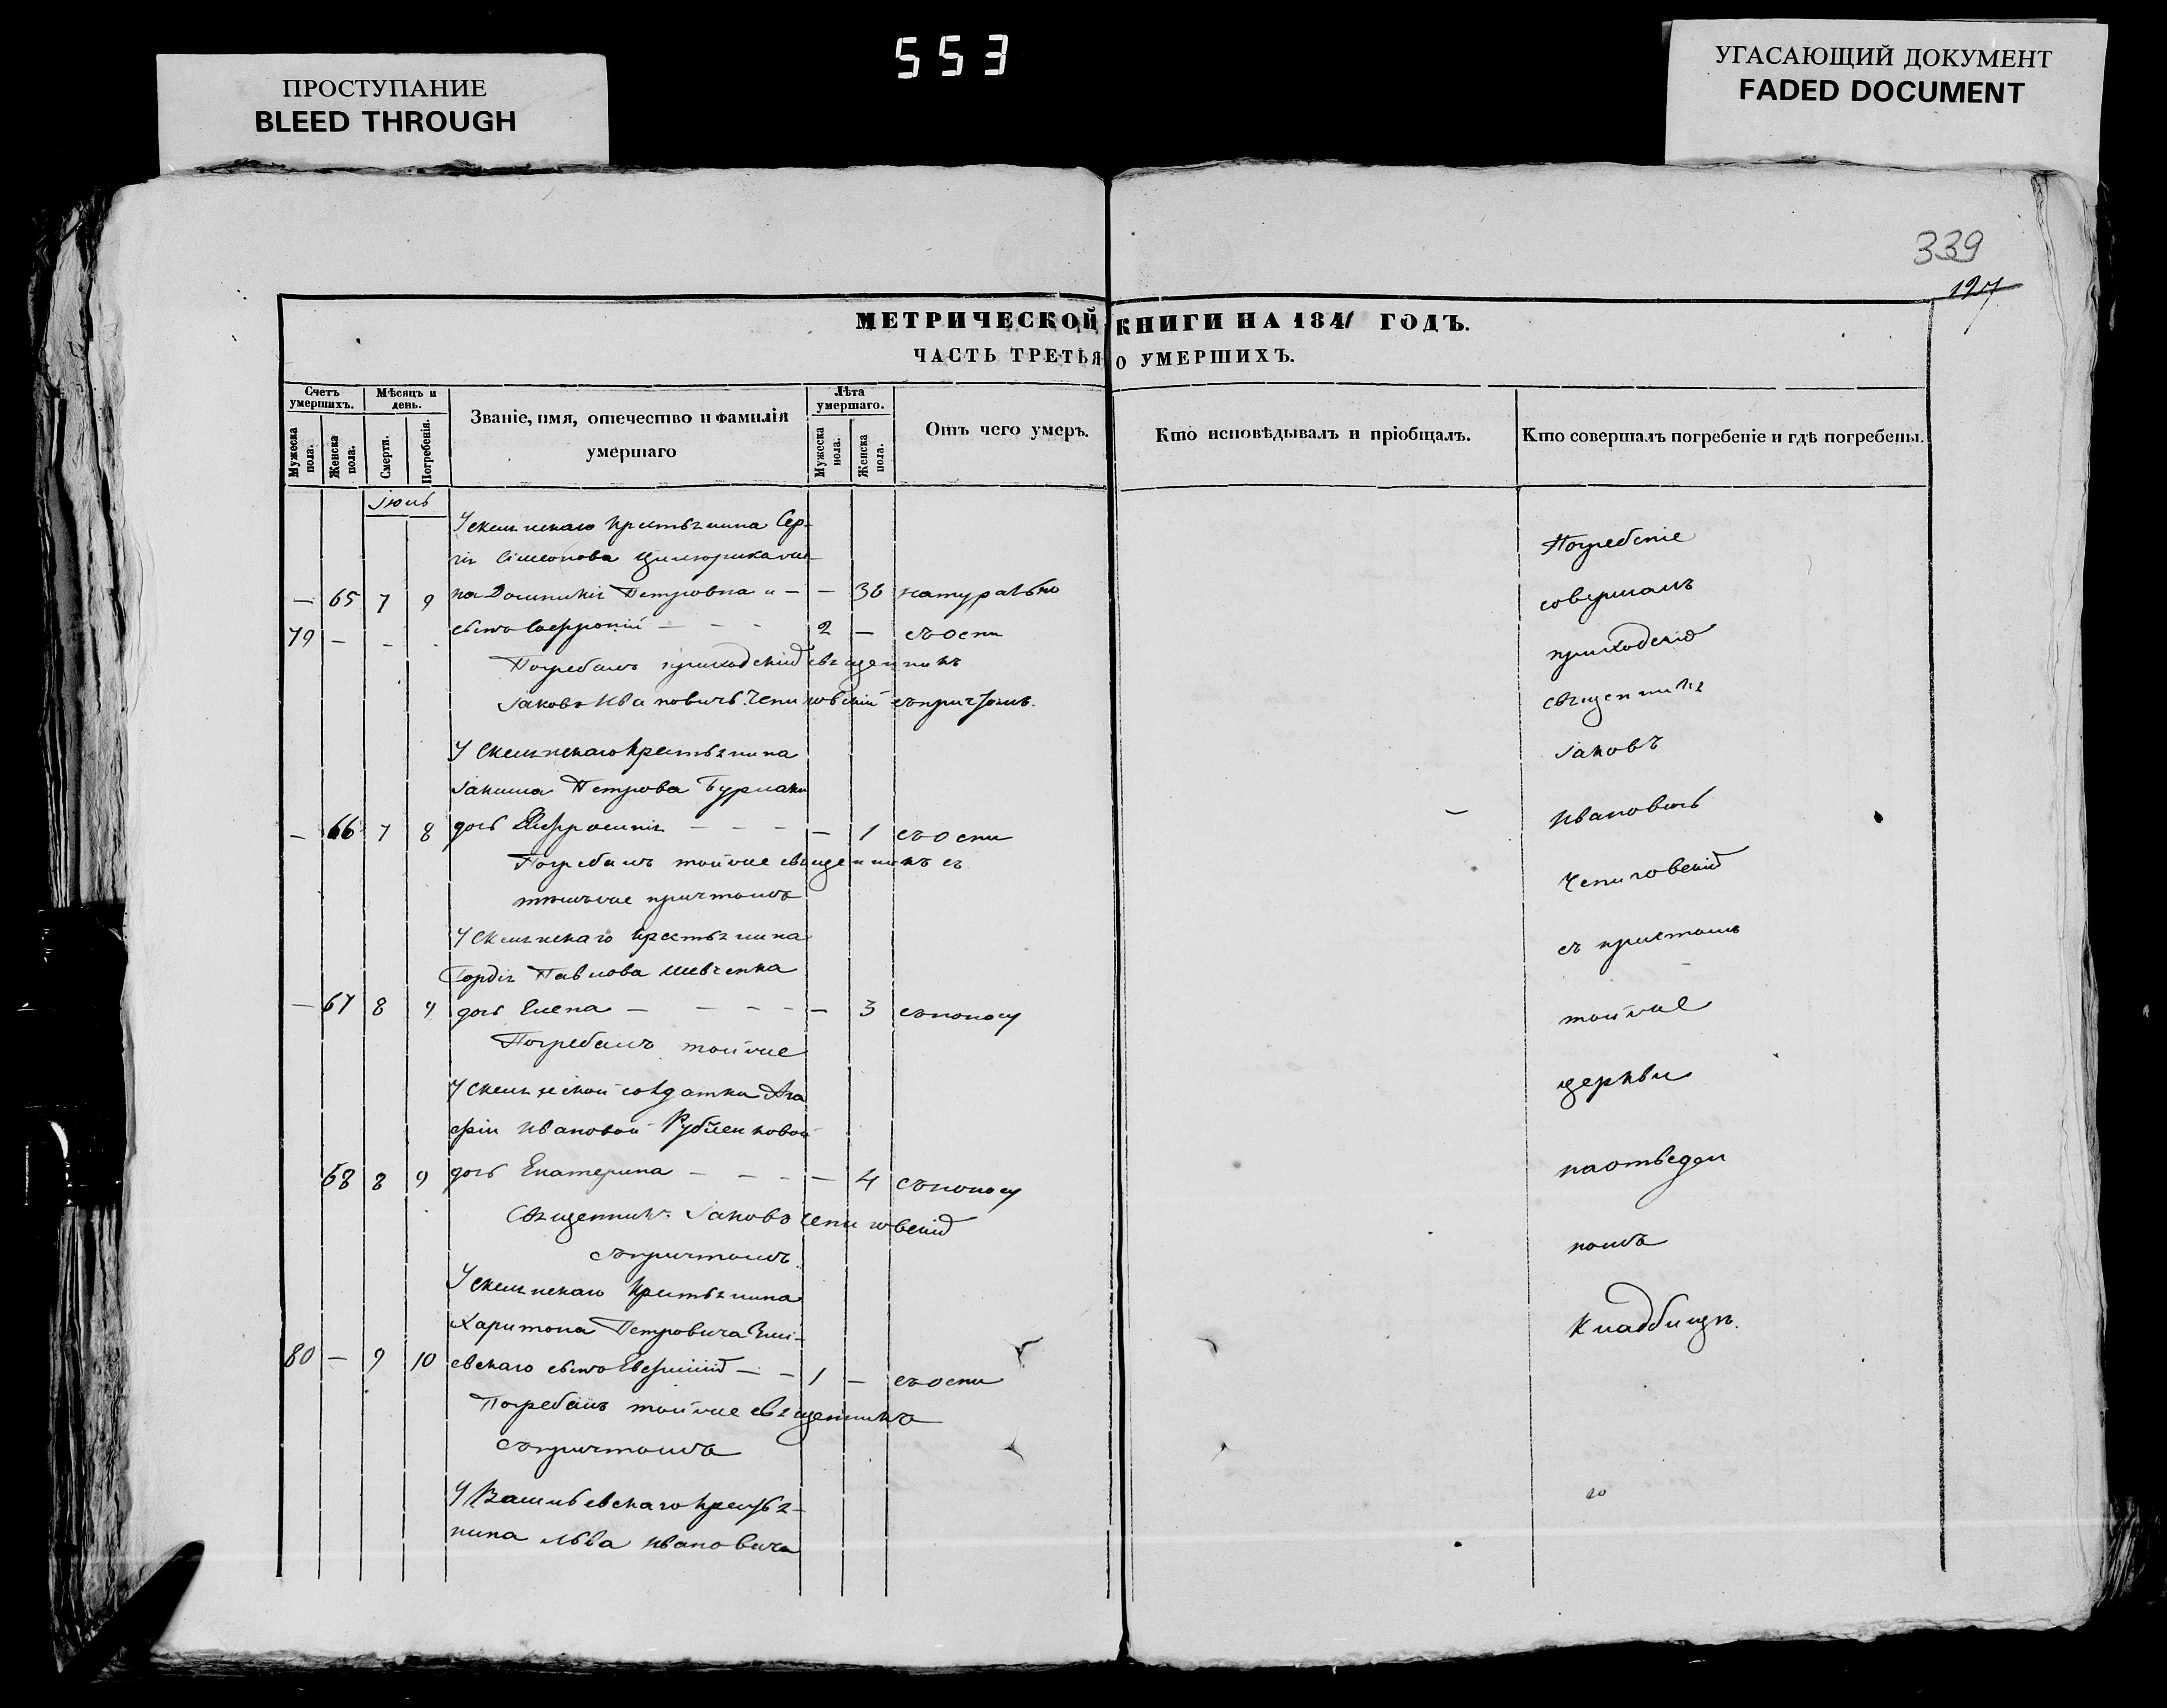 553
ПРОСТУПАНИЕ
BLEED THROUGH
УГАСАЮЩИЙ ДОКУМЕНТ
FADED DOCUMENT
339
127
МЕТРИЧЕСКОЙ КНИГИ НА 1841 ГОДЪ.
ЧАСТЬ ТРЕТЬЯ О УМЕРШИХЪ.
Счетъ умершихъ.
Мужеска пола.
Женска пола.
Мѣсяцъ и день.
Смерти.
Погребенія.
Званіе, имя, отечество и фамилія умершаго
Лѣта умершаго.
Мужеска пола.
Женска пола.
Отъ чего умеръ.
Кто исповѣдывалъ и пріобщалъ.
Кто совершалъ погребеніе и гдѣ погребены.
Іюль
Ускельскаго крестьянина Сер-
гія Симеонова
— 65 7 9 на Домникія Петровна — — 36 натурально
79 — - - сынъ Софроній — - - 2 — съ оспи
Погребалъ приходскій священникъ
Іаковъ Ивановичъ Чепиговскій съ причтомъ.
У скельскаго крестьянина
Іакима Петрова
— 66 7 8 дочь Евфросинія — - - — 1 съ оспи
Погребалъ тойже священникъ съ
тѣмъже причтомъ
У скельскаго крестьянина
Гордія Павлова Шевченка
— 67 8 9 дочь Елена — - - - — 3 съ поносу
Погребалъ тойже
У скельской солдатки Ага
фіи Ивановой Рубленковой
68 8 9 дочь Екатерина — - - — 4 съ поносу
Священникъ Іаковъ Чепиговскій
съ причтомъ.
У скельскаго крестьянина
Харитона Петровича Змі-
80 — 9 10 евскаго сынъ Евфимій — - 1 — съ оспи
Погребалъ тойже священникъ
съ причтомъ
У Васильевскаго крестья-
нина Льва Ивановича
Погребеніе
совершалъ
приходскій
священникъ
Іаковъ
Ивановичъ
Чепиговскій
съ причтомъ
тойже
церкви
на отведен
номъ
Кладбищѣ.